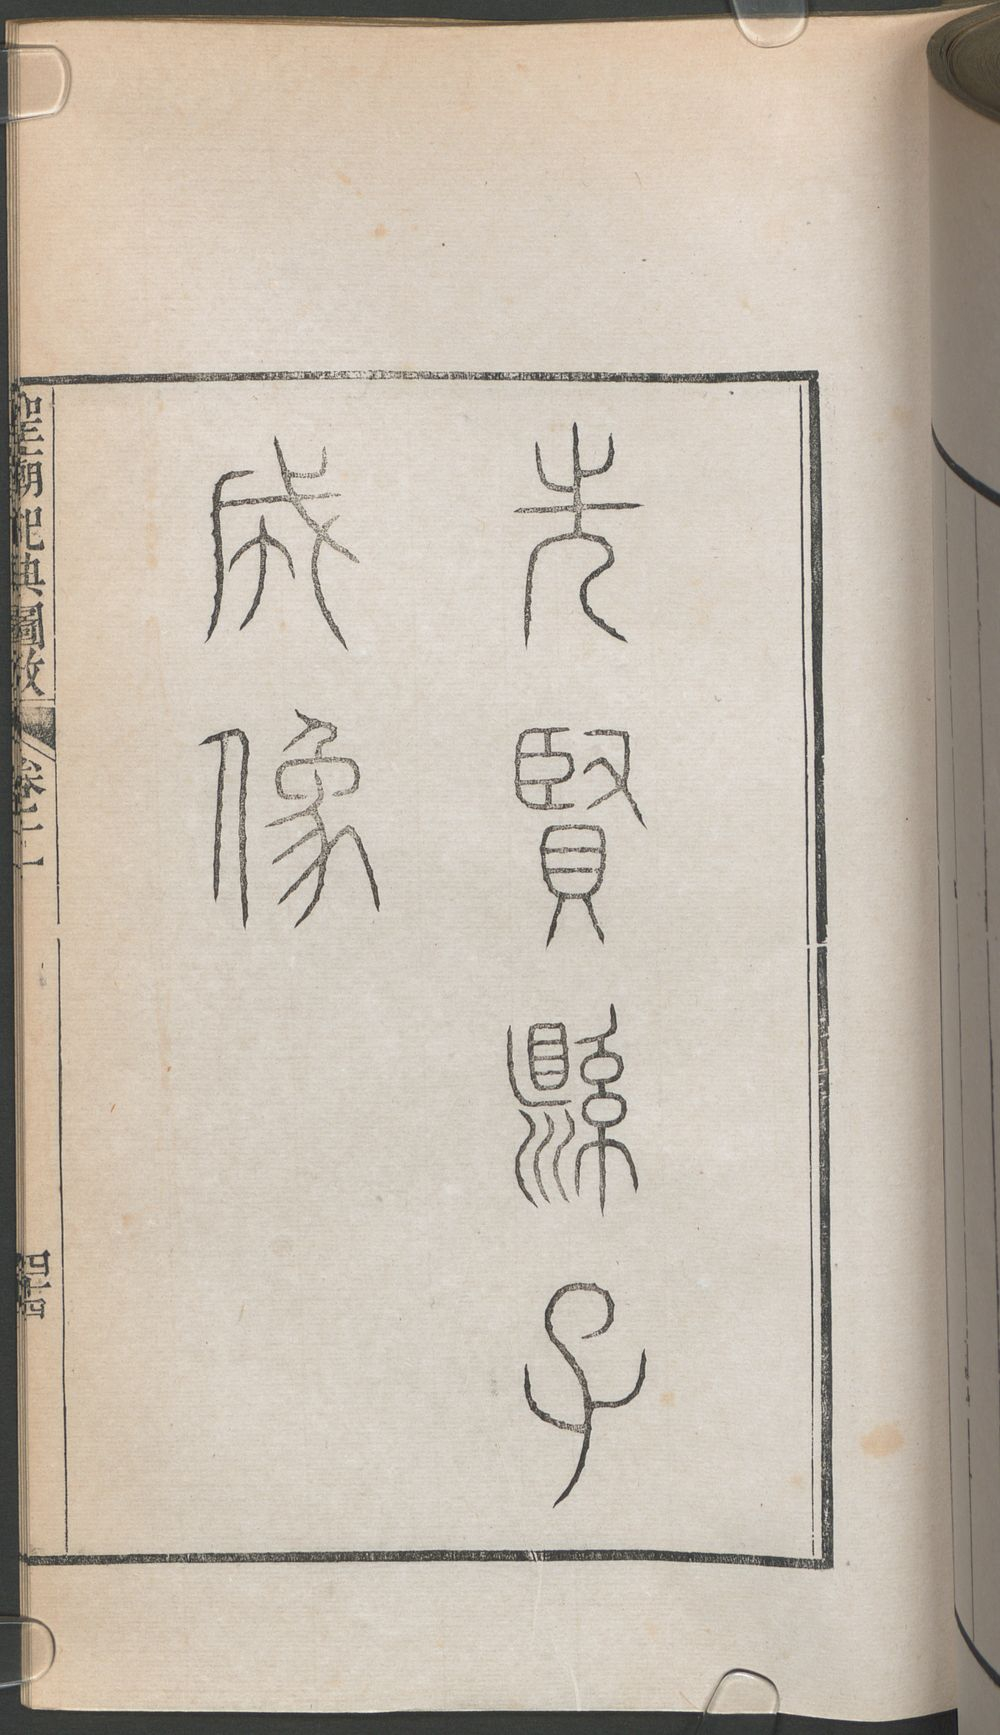 先賢縣子
成像
聖朝祀典圖攷
卷二
四十四